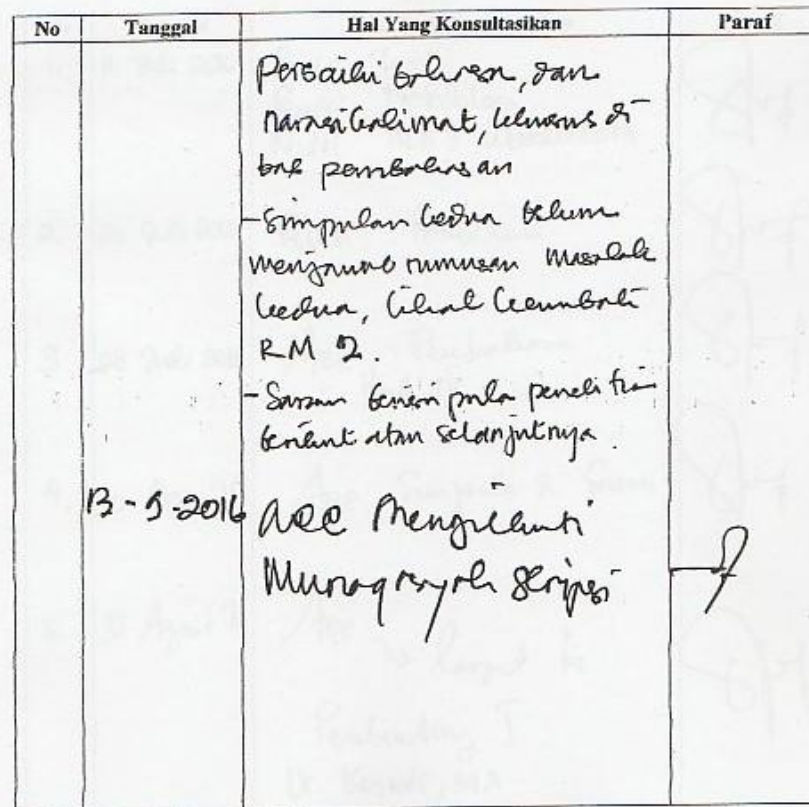 No Tanggal Hal Yang Konsultasikan Paraf
Perbaiki bahasa, dan
narasi kalimat, khusus di
bab pembahasan
- Simpulan kedua belum
menjawab rumusan masalah
kedua, lihat kembali
RM 2.
- Saran berisi pula penelitian
berikut atau selanjutnya.
13-9-2016 acc Mengikuti
Munaqasyah Skripsi